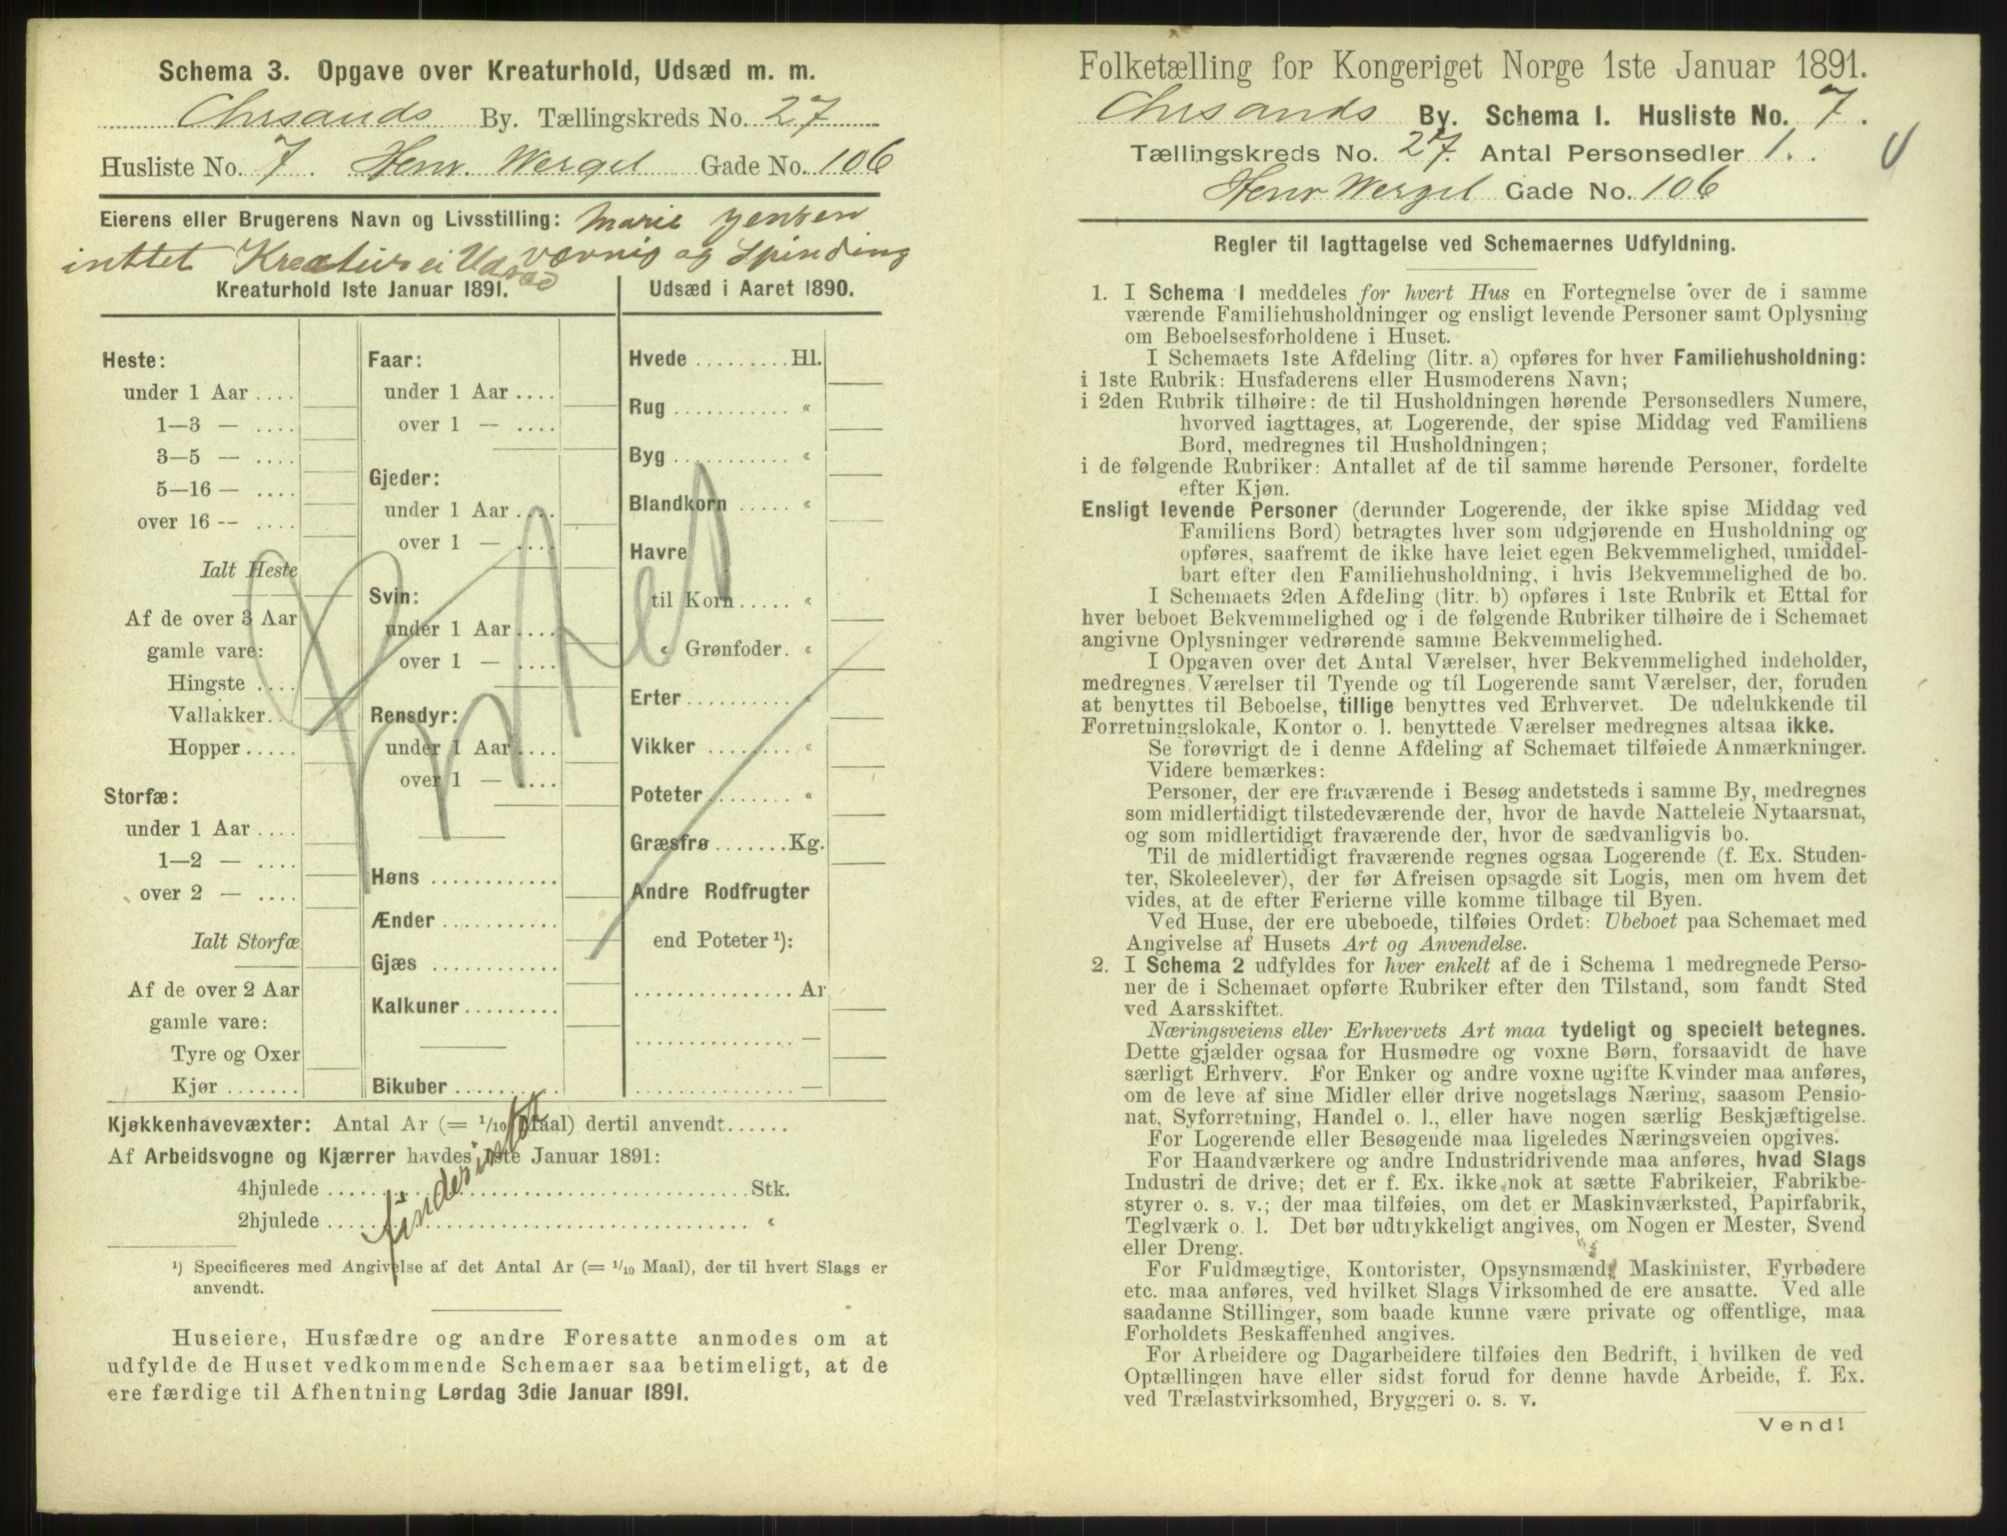 Schema 3. Opgave over Kreaturhold, Udsæd m. m.
Chrsands By. Tællingskreds No. 27
Husliste No. 7. Henr. Wergel Gade No. 106
Eierens eller Brugerens Navn og Livsstilling: Marie Jensen
inttet Kreatur ei Udsæd vævnig og Spinding
Kreaturhold 1ste Januar 1891.
Heste:
under 1 Aar ....
1—3 — ....
3—5 — ....
5—16 — ....
over 16 -- ....
Ialt Heste
Af de over 3 Aar
gamle vare:
Hingste ....
Vallakker..
Hopper .....
Storfæ:
under 1 Aar ....
1—2 — ....
over 2 — ....
Ialt Storfæ
Af de over 2 Aar
gamle vare:
Tyre og Oxer
Kjør .......
Faar:
under 1 Aar ....
over 1 — ....
Gjeder:
under 1 Aar ....
over 1 — ....
Svin:
under 1 Aar ....
over 1 — ....
Rensdyr:
under 1 Aar ....
over 1 — ....
Høns ............
Ænder ...........
Gjæs ............
Kalkuner.........
Bikuber ..........
Udsæd i Aaret 1890.
Hvede .........Hl.
Rug ........... "
Byg ........... "
Blandkorn ..... "
Havre
til Korn ..... "
" Grønfoder. "
Erter .......... "
Vikker ........ "
Poteter ........ "
Græsfrø .......Kg.
Andre Rodfrugter
end Poteter ¹):
............... Ar
............... —
............... —
Kjøkkenhavevæxter: Antal Ar (= 1/10 Maal) dertil anvendt......
Af Arbeidsvogne og Kjærrer havdes 1ste Januar 1891:
4hjulede ........................................ Stk.
2hjulede ........................................ "
findes intet
¹) Specificeres med Angivelse af det Antal Ar (= 1/10 Maal), der til hvert Slags er
anvendt.
Huseiere, Husfædre og andre Foresatte anmodes om at
udfylde de Huset vedkommende Schemaer saa betimeligt, at de
ere færdige til Afhentning Lørdag 3die Januar 1891.
Folketælling for Kongeriget Norge 1ste Januar 1891.
Chrsands By. Schema I. Husliste No. 7.
Tællingskreds No. 27. Antal Personsedler 1.
Henr Wergel Gade No. 106
Regler til Iagttagelse ved Schemaernes Udfyldning.
1. I Schema 1 meddeles for hvert Hus en Fortegnelse over de i samme
værende Familiehusholdninger og ensligt levende Personer samt Oplysning
om Beboelsesforholdene i Huset.
I Schemaets 1ste Afdeling (litr. a) opføres for hver Familiehusholdning:
i 1ste Rubrik: Husfaderens eller Husmoderens Navn;
i 2den Rubrik tilhøire: de til Husholdningen hørende Personsedlers Numere,
hvorved iagttages, at Logerende, der spise Middag ved Familiens
Bord, medregnes til Husholdningen;
i de følgende Rubriker: Antallet af de til samme hørende Personer, fordelte
efter Kjøn.
Ensligt levende Personer (derunder Logerende, der ikke spise Middag ved
Familiens Bord) betragtes hver som udgjørende en Husholdning og
opføres, saafremt de ikke have leiet egen Bekvemmelighed, umiddel-
bart efter den Familiehusholdning, i hvis Bekvemmelighed de bo.
I Schemaets 2den Afdeling (litr. b) opføres i 1ste Rubrik et Ettal for
hver beboet Bekvemmelighed og i de følgende Rubriker tilhøire de i Schemaet
angivne Oplysninger vedrørende samme Bekvemmelighed.
I Opgaven over det Antal Værelser, hver Bekvemmelighed indeholder,
medregnes Værelser til Tyende og til Logerende samt Værelser, der, foruden
at benyttes til Beboelse, tillige benyttes ved Erhvervet. De udelukkende til
Forretningslokale, Kontor o. l. benyttede Værelser medregnes altsaa ikke.
Se forøvrigt de i denne Afdeling af Schemaet tilføiede Anmærkninger.
Videre bemærkes:
Personer, der ere fraværende i Besøg andetsteds i samme By, medregnes
som midlertidigt tilstedeværende der, hvor de havde Natteleie Nytaarsnat,
og som midlertidigt fraværende der, hvor de sædvanligvis bo.
Til de midlertidigt fraværende regnes ogsaa Logerende (f. Ex. Studen-
ter, Skoleelever), der før Afreisen opsagde sit Logis, men om hvem det
vides, at de efter Ferierne ville komme tilbage til Byen.
Ved Huse, der ere ubeboede, tilføies Ordet: Ubeboet paa Schemaet med
Angivelse af Husets Art og Anvendelse.
2. I Schema 2 udfyldes for hver enkelt af de i Schema 1 medregnede Perso-
ner de i Schemaet opførte Rubriker efter den Tilstand, som fandt Sted
ved Aarsskiftet.
Næringsveiens eller Erhvervets Art maa tydeligt og specielt betegnes.
Dette gjælder ogsaa for Husmødre og voxne Børn, forsaavidt de have
særligt Erhverv. For Enker og andre voxne ugifte Kvinder maa anføres,
om de leve af sine Midler eller drive nogetslags Næring, saasom Pensio-
nat, Syforretning, Handel o. l., eller have nogen særlig Beskjæftigelse.
For Logerende eller Besøgende maa ligeledes Næringsveien opgives.
For Haandværkere og andre Industridrivende maa anføres, hvad Slags
Industri de drive; det er f. Ex. ikke nok at sætte Fabrikeier, Fabrikbe-
styrer o. s. v.; der maa tilføies, om det er Maskinværksted, Papirfabrik,
Teglværk o. l. Det bør udtrykkeligt angives, om Nogen er Mester, Svend
eller Dreng.
For Fuldmægtige, Kontorister, Opsynsmænd, Maskinister, Fyrbødere
etc. maa anføres, ved hvilket Slags Virksomhed de ere ansatte. Ved alle
saadanne Stillinger, som baade kunne være private og offentlige, maa
Forholdets Beskaffenhed angives.
For Arbeidere og Dagarbeidere tilføies den Bedrift, i hvilken de ved
Optællingen have eller sidst forud for denne havde Arbeide, f. Ex.
ved Trælastvirksomhed, Bryggeri o. s. v.
Vend!